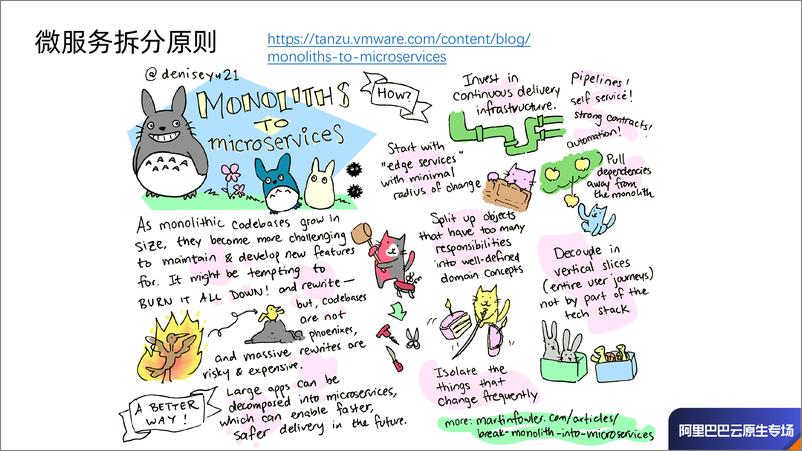 微服务拆分原则
https://tanzu.vmware.com/content/blog/
monoliths-to-microservices
@deniseyu21
MONOLITHS
TO
microservices
As monolithic codebases grow in
size, they become more challenging
to maintain & develop new features
for. It might be tempting to
BURN IT ALL DOWN! and rewrite—
but, codebases
are not
phoenixes,
and massive rewrites are
risky & expensive.
A BETTER
WAY!
Large apps can be
decomposed into microservices,
which can enable faster,
safer delivery in the future.
How?
Invest in
continuous delivery
infrastructure.
Pipelines!
self service!
strong contracts!
automation!
Start with
"edge services"
with minimal
radius of change
Pull
dependencies
away from
the monolith
Split up objects
that have too many
responsibilities
into well-defined
domain concepts
Decouple in
vertical slices
(entire user journeys)
not by part of the
tech stack
Isolate the
things that
change frequently
more: martinfowler.com/articles/
break-monolith-into-microservices
阿里巴巴云原生专场